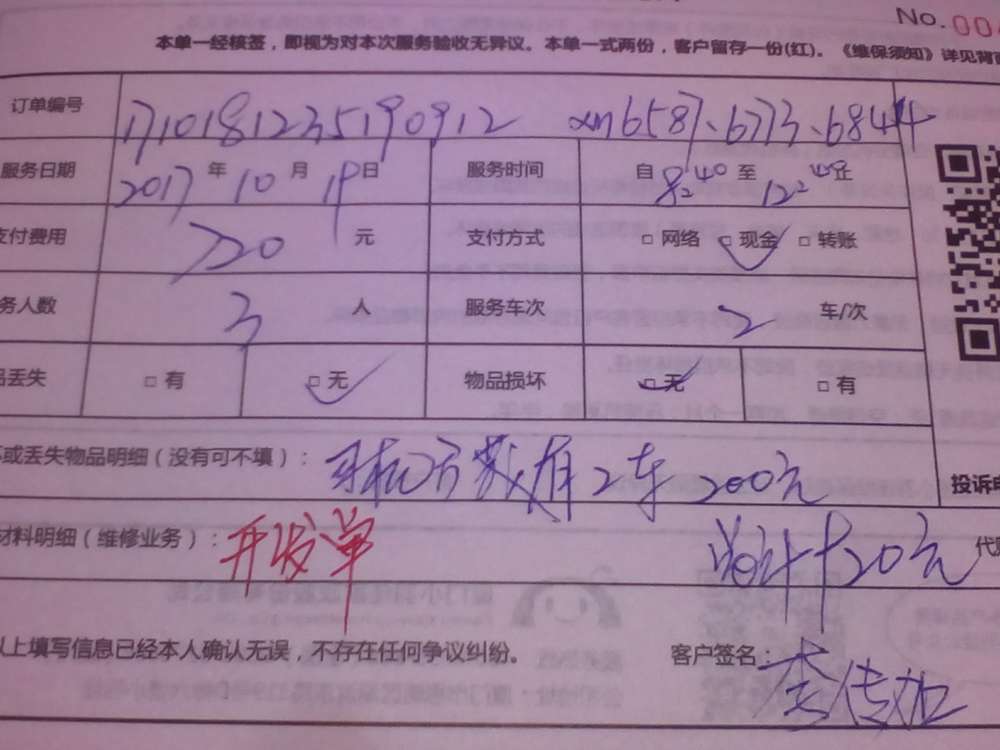 No.00
本单一经核签，即视为对本次服务验收无异议。本单一式两份，客户留存一份(红)。《维保须知》详见背
订单编号 1710181235190912 xm6587、6773、6844
服务日期 2017年10月19日 服务时间 自8:40至12:40止
支付费用 720元 支付方式 □网络 □现金 □转账
务人数 3人 服务车次 2车/次
品丢失 □有 □无 物品损坏 □无 □有
或丢失物品明细（没有可不填）： 2车200元
投诉
材料明细（维修业务）：开发单 720元 代
以上填写信息已经本人确认无误，不存在任何争议纠纷。 客户签名：李传